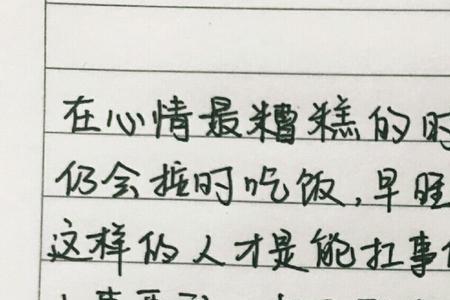 在心情最糟糕的时
仍会按时吃饭,早睡
这样的人才是能扛事